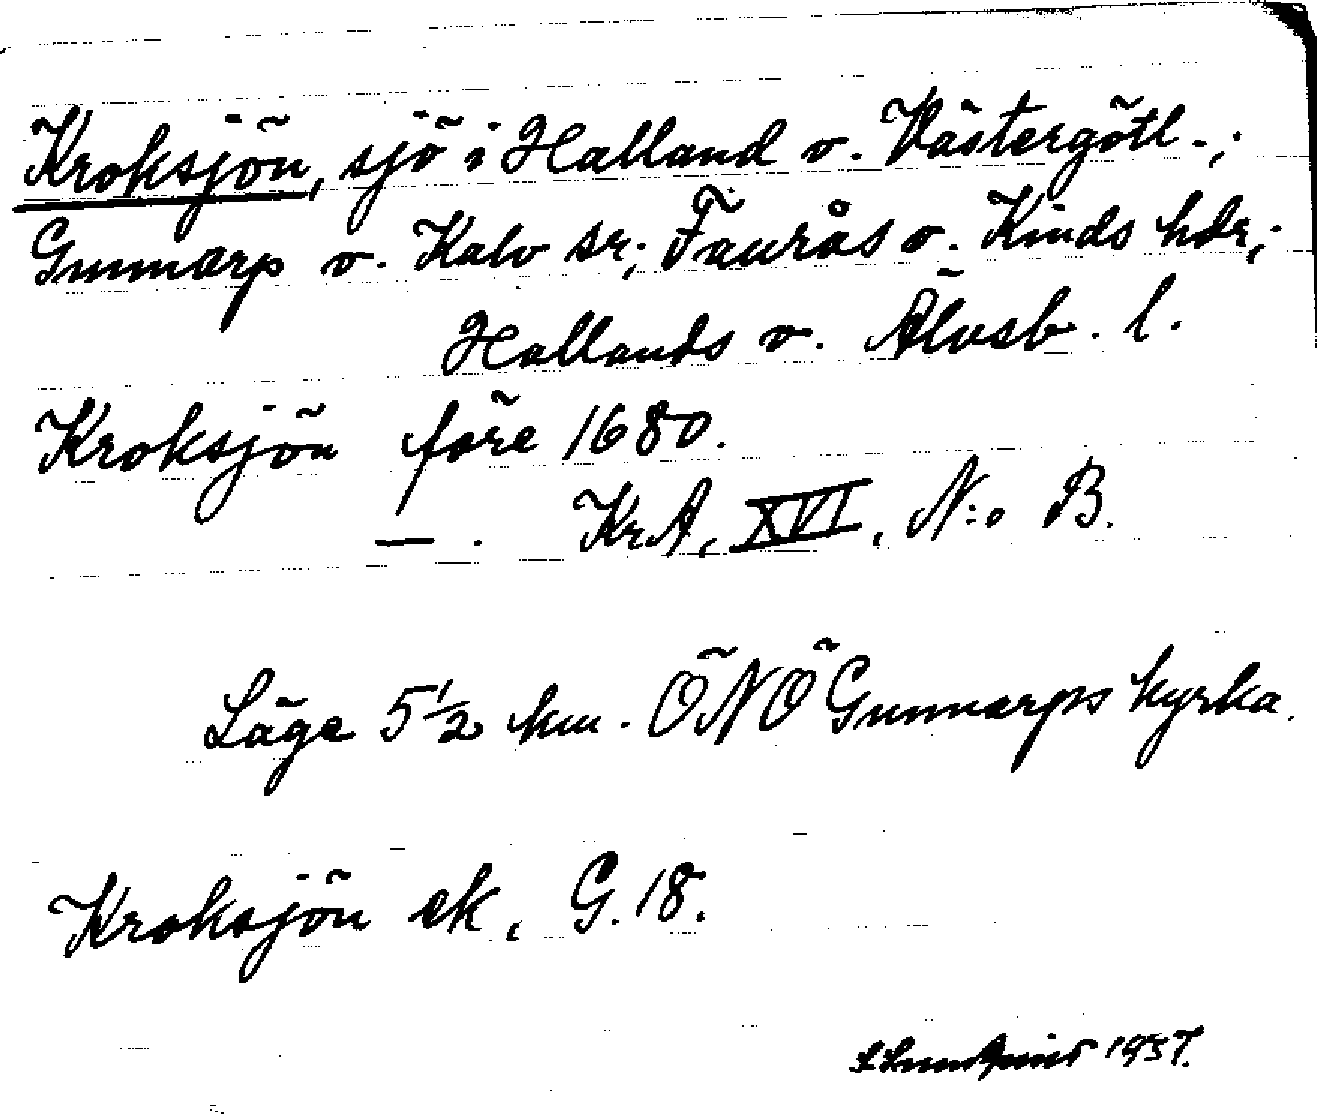 Kroksjön, sjö i Halland o. Västergötl.;
Gunnarp o. Kalv sr; Faurås o. Kinds hdr;
Hallands o. Älvsb. l.
Kroksjön före 1680.
— . KrA, XVI, N:o B.
Läge 5 1/2 km. ÖNÖ Gunnarps kyrka.
Kroksjön ek, G. 18.
Lundqvist 1937.